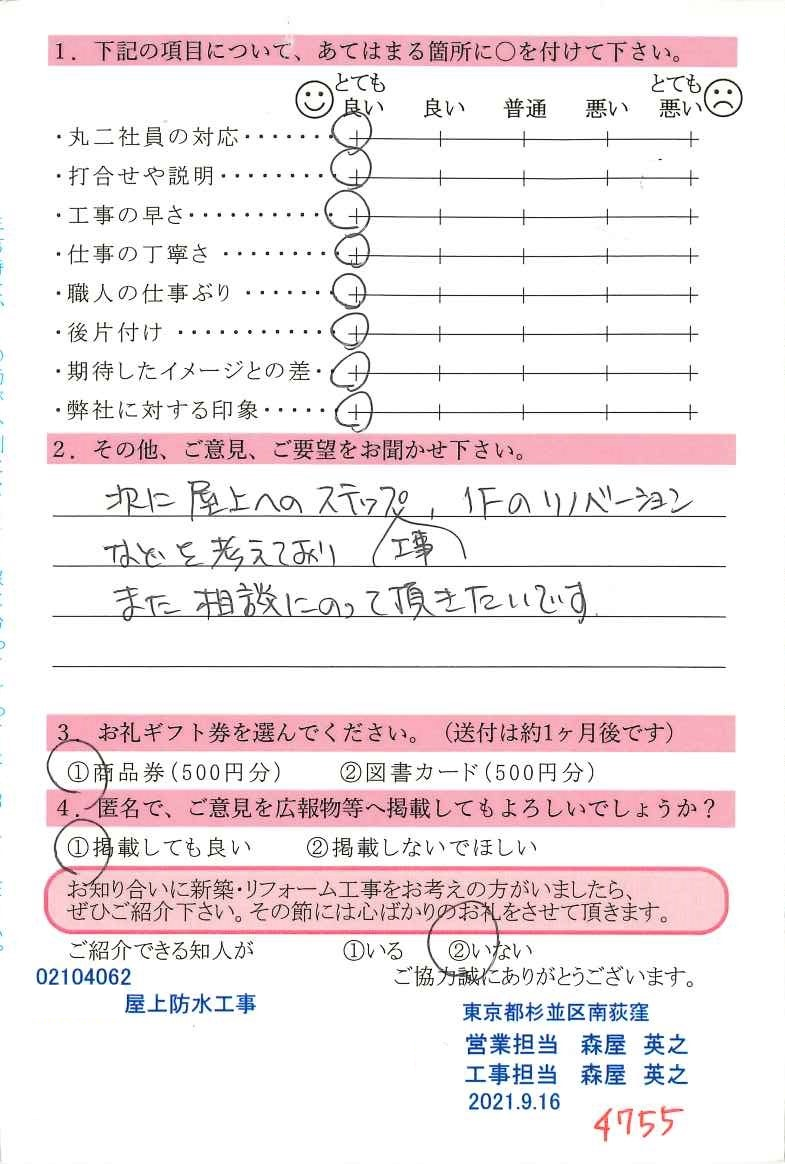 1．下記の項目について、あてはまる箇所に○を付けて下さい。
とても良い　良い　普通　悪い　とても悪い
・丸二社員の対応・・・・・・・
・打合せや説明・・・・・・・・
・工事の早さ・・・・・・・・・・
・仕事の丁寧さ ・・・・・・・・
・職人の仕事ぶり ・・・・・・・
・後片付け ・・・・・・・・・・・
・期待したイメージとの差・・
・弊社に対する印象・・・・・
2．その他、ご意見、ご要望をお聞かせ下さい。
次に屋上へのステップ, 1Fのリノベーション
などを考えており 工事
また相談にのって頂きたいです.
3．お礼ギフト券を選んでください。（送付は約1ヶ月後です）
①商品券（500円分）　②図書カード（500円分）
4．匿名で、ご意見を広報物等へ掲載してもよろしいでしょうか？
①掲載しても良い　②掲載しないでほしい
お知り合いに新築・リフォーム工事をお考えの方がいましたら、
ぜひご紹介下さい。その節には心ばかりのお礼をさせて頂きます。
ご紹介できる知人が　①いる　②いない
ご協力誠にありがとうございます。
02104062
屋上防水工事
東京都杉並区南荻窪
営業担当　森屋　英之
工事担当　森屋　英之
2021.9.16
4755